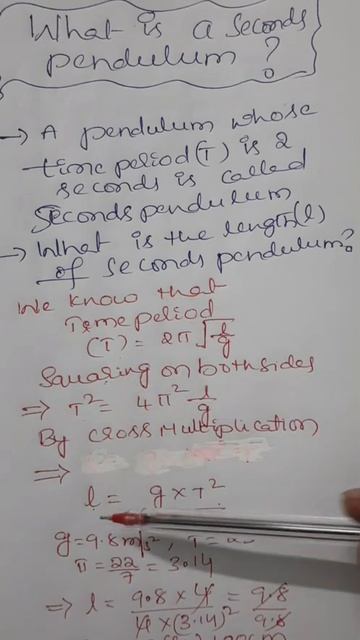 What is a Seconds
pendulum?
→ A pendulum whose
time period (T) is 2
seconds is called
Seconds pendulum
→ What is the length(l)
of seconds pendulum?
We know that
Time period
(T) = 2π√l/g
Squaring on both sides
⇒ T² = 4π² l/g
By cross Multiplication
⇒
l = g × T²
g = 9.8 m/s²,
π = 22/7 = 3.14
⇒ l = 9.8 × 4 / 4 × (3.14)² = 9.8 / 9.8